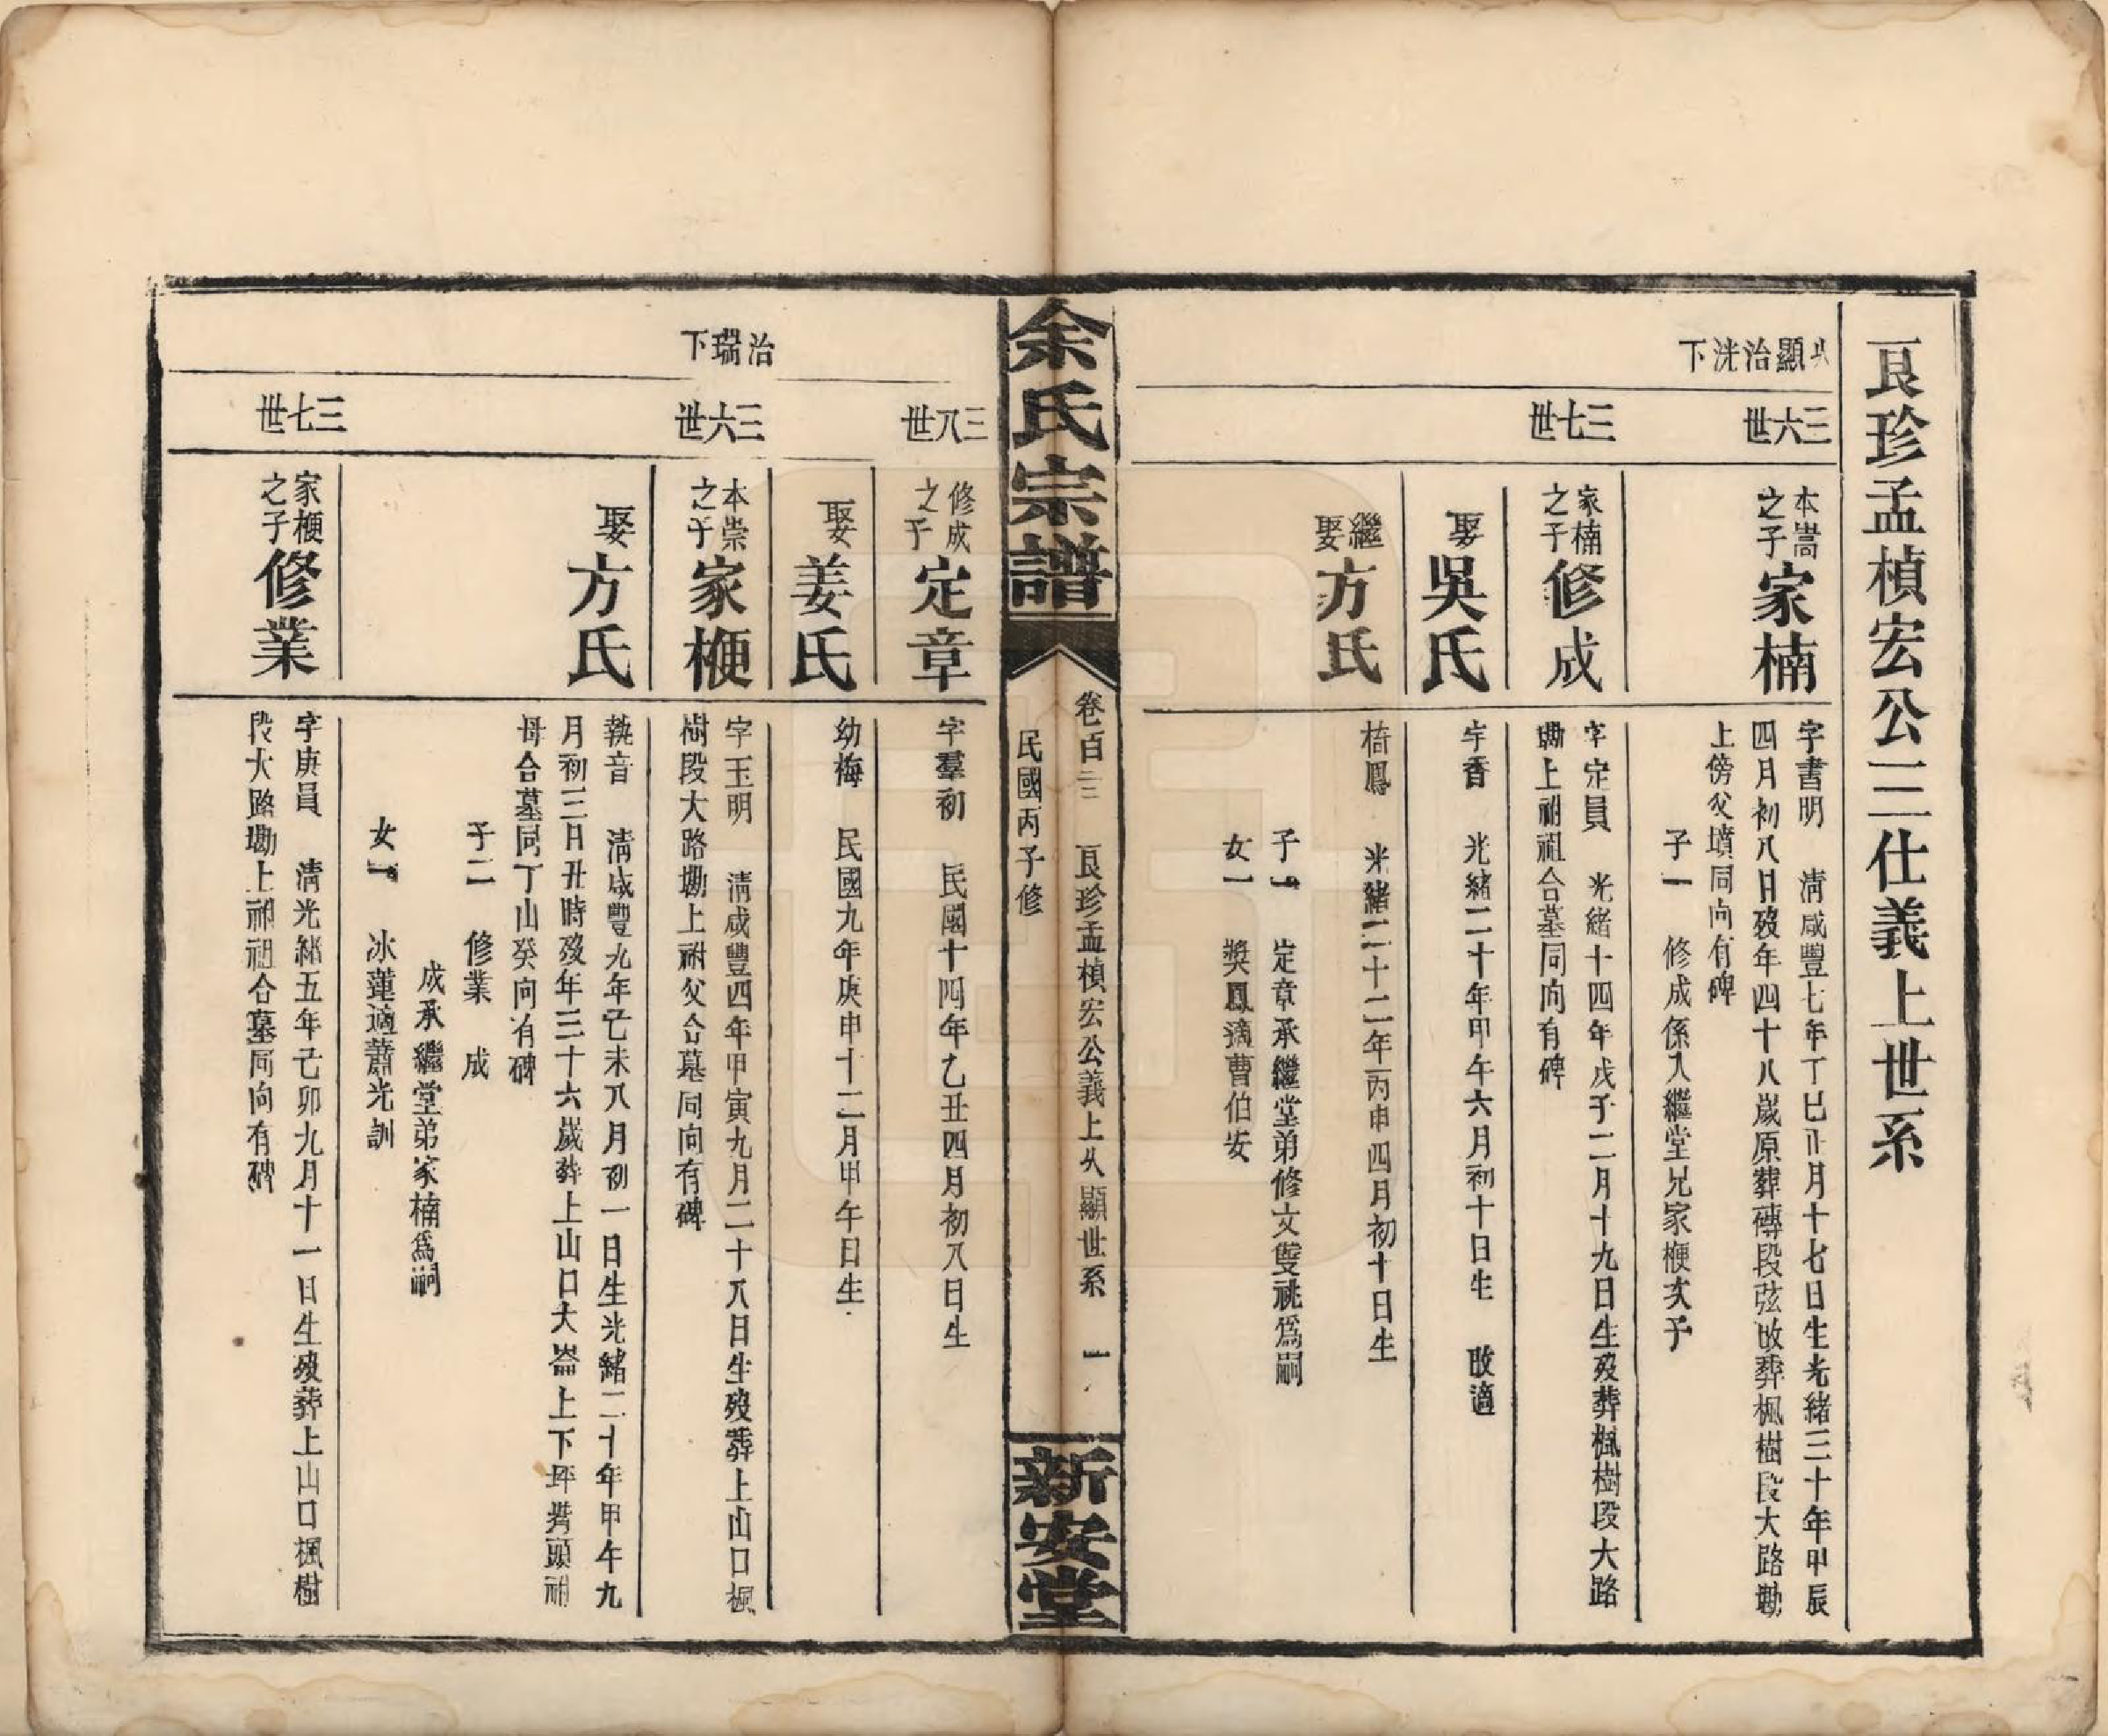 艮珍孟楨宏公三仕義上世系
顯治洸下
三六世
本嵩之子家楠
字書明 清咸豐七年丁巳正月十七日生光緒三十年甲辰
四月初八日歿年四十八歲原葬磚段弦改葬楓樹段大路墈
上傍父墳同向有碑
子一 修成係入繼堂兄家梗次子
三七世
家楠之子修成
字定員 光緒十四年戊子二月十九日生歿葬楓樹段大路
墈上祔祖合墓同向有碑
娶吳氏
字香 光緒二十年甲午六月初十日生 改適
繼娶方氏
椅鳳 光緒二十二年丙申四月初十日生
子一 定章承繼堂弟修文雙祧爲嗣
女一 獎鳳適曹伯安
余氏宗譜
卷百三 艮珍孟楨宏公義上从顯世系 一
民國丙子修
新安堂
三八世
修成之子定章
字羣初 民國十四年乙丑四月初八日生
娶姜氏
幼梅 民國九年庚申十二月甲午日生
治瑞下
三六世
本崇之子家梗
字玉明 清咸豐四年甲寅九月二十八日生歿葬上山口楓
樹段大路墈上祔父合墓同向有碑
娶方氏
執音 清咸豐九年己未八月初一日生光緒二十年甲午九
月初三日丑時歿年三十六歲葬上山口大崙上下坪嘴頭祔
母合墓同丁山癸向有碑
子二 修業 成
成承繼堂弟家楠爲嗣
女一 冰蓮適蕭光訓
三七世
家梗之子修業
字庚員 清光緒五年己卯九月十一日生歿葬上山口楓樹
段大路墈上祔祖合墓同向有碑